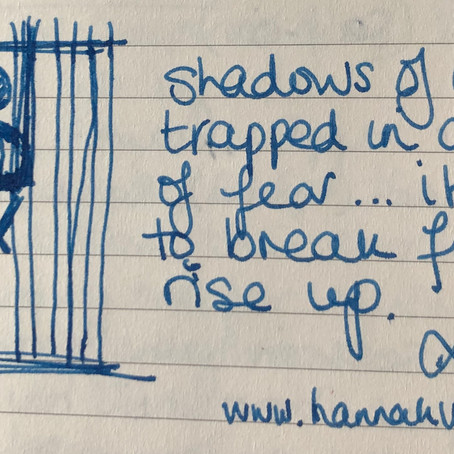 shadows of
trapped in
of fear...
to break
rise up.
www.hannah